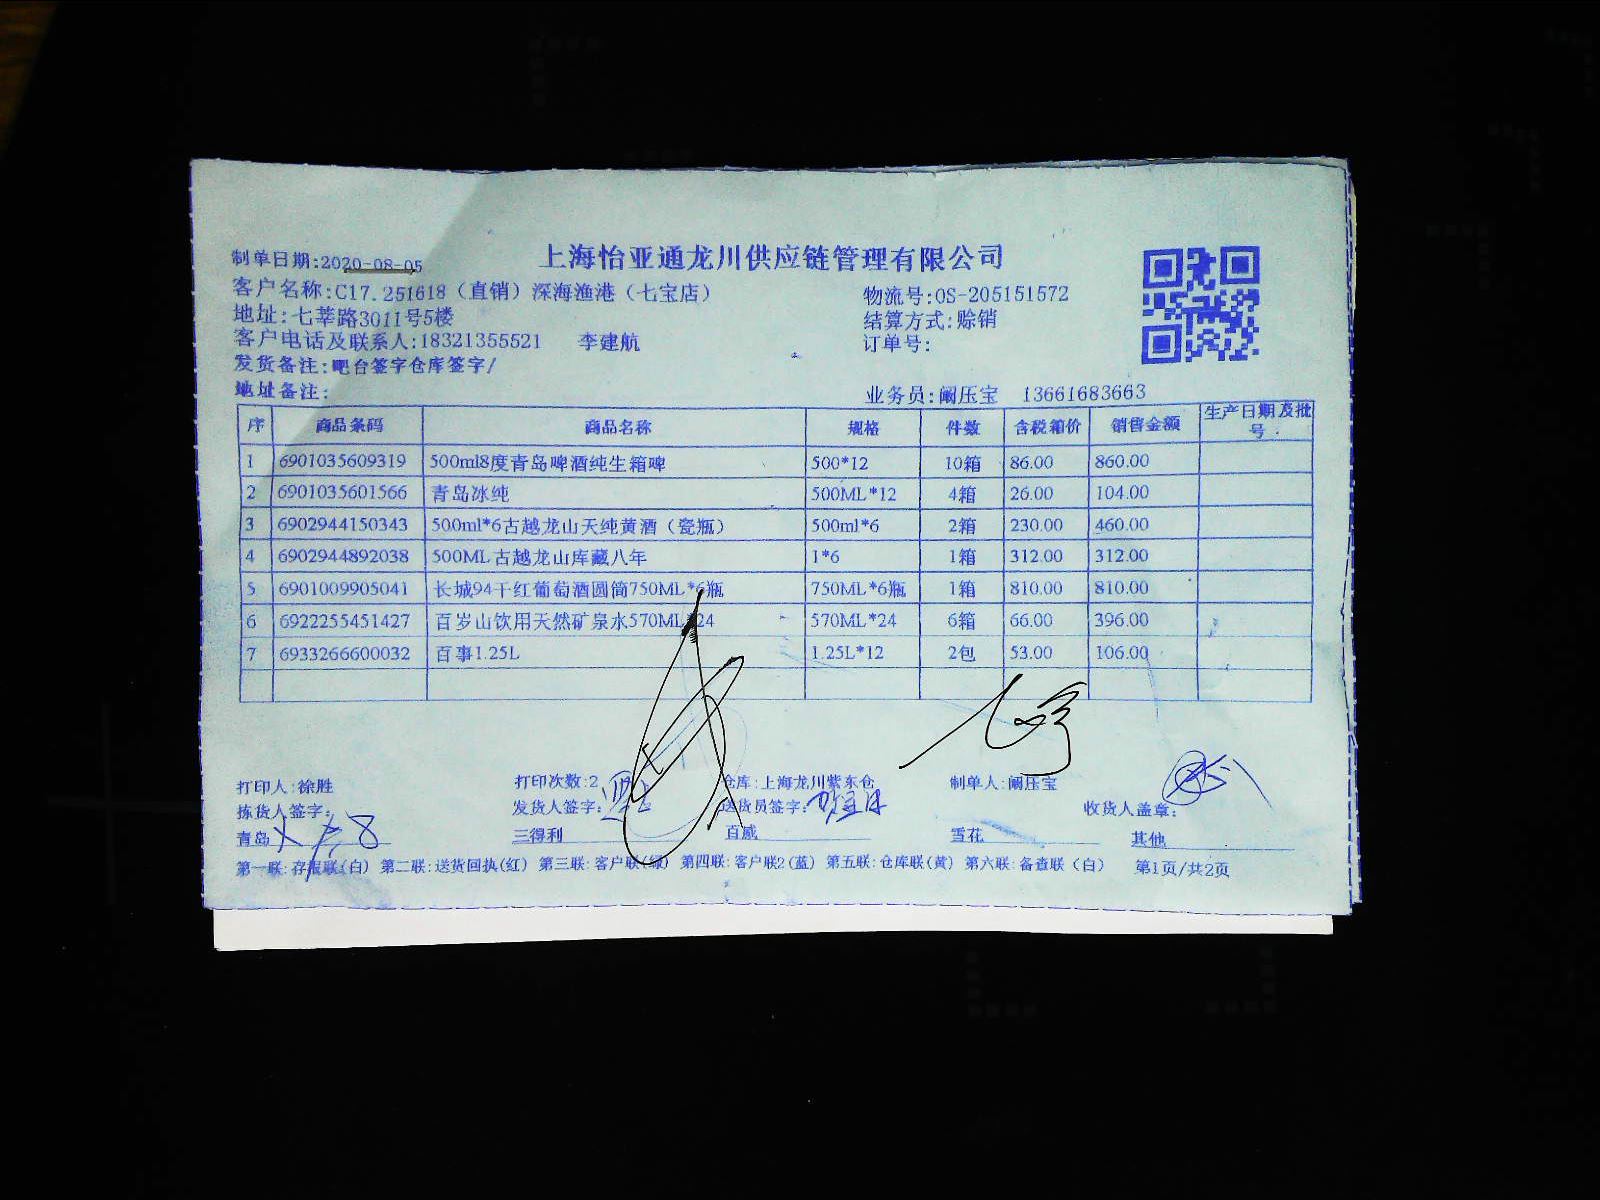 上海怡亚通龙川供应链管理有限公司
制单日期:2020-08-05
客户名称:C17.251618（直销）深海渔港（七宝店） 物流号:OS-205151572
地址:七莘路3011号5楼 结算方式:赊销
客户电话及联系人:18321355521 李建航 订单号:
发货备注:吧台签字仓库签字/
地址备注: 业务员:阚压宝 13661683663
序 商品条码 商品名称 规格 件数 含税箱价 销售金额 生产日期及批号
1 6901035609319 500ml8度青岛啤酒纯生箱啤 500*12 10箱 86.00 860.00
2 6901035601566 青岛冰纯 500ML*12 4箱 26.00 104.00
3 6902944150343 500ml*6古越龙山天纯黄酒（瓷瓶） 500ml*6 2箱 230.00 460.00
4 6902944892038 500ML古越龙山库藏八年 1*6 1箱 312.00 312.00
5 6901009905041 长城94干红葡萄酒圆筒750ML*6瓶 750ML*6瓶 1箱 810.00 810.00
6 6922255451427 百岁山饮用天然矿泉水570ML*24 570ML*24 6箱 66.00 396.00
7 6933266600032 百事1.25L 1.25L*12 2包 53.00 106.00
打印人:徐胜 打印次数:2 仓库:上海龙川紫东仓 制单人:阚压宝
拣货人签字: 发货人签字: 送货员签字: 收货人盖章:
青岛 三得利 百威 雪花 其他
第一联:存根联(白) 第二联:送货回执(红) 第三联:客户联(绿) 第四联:客户联2(蓝) 第五联:仓库联(黄) 第六联:备查联（白） 第1页/共2页